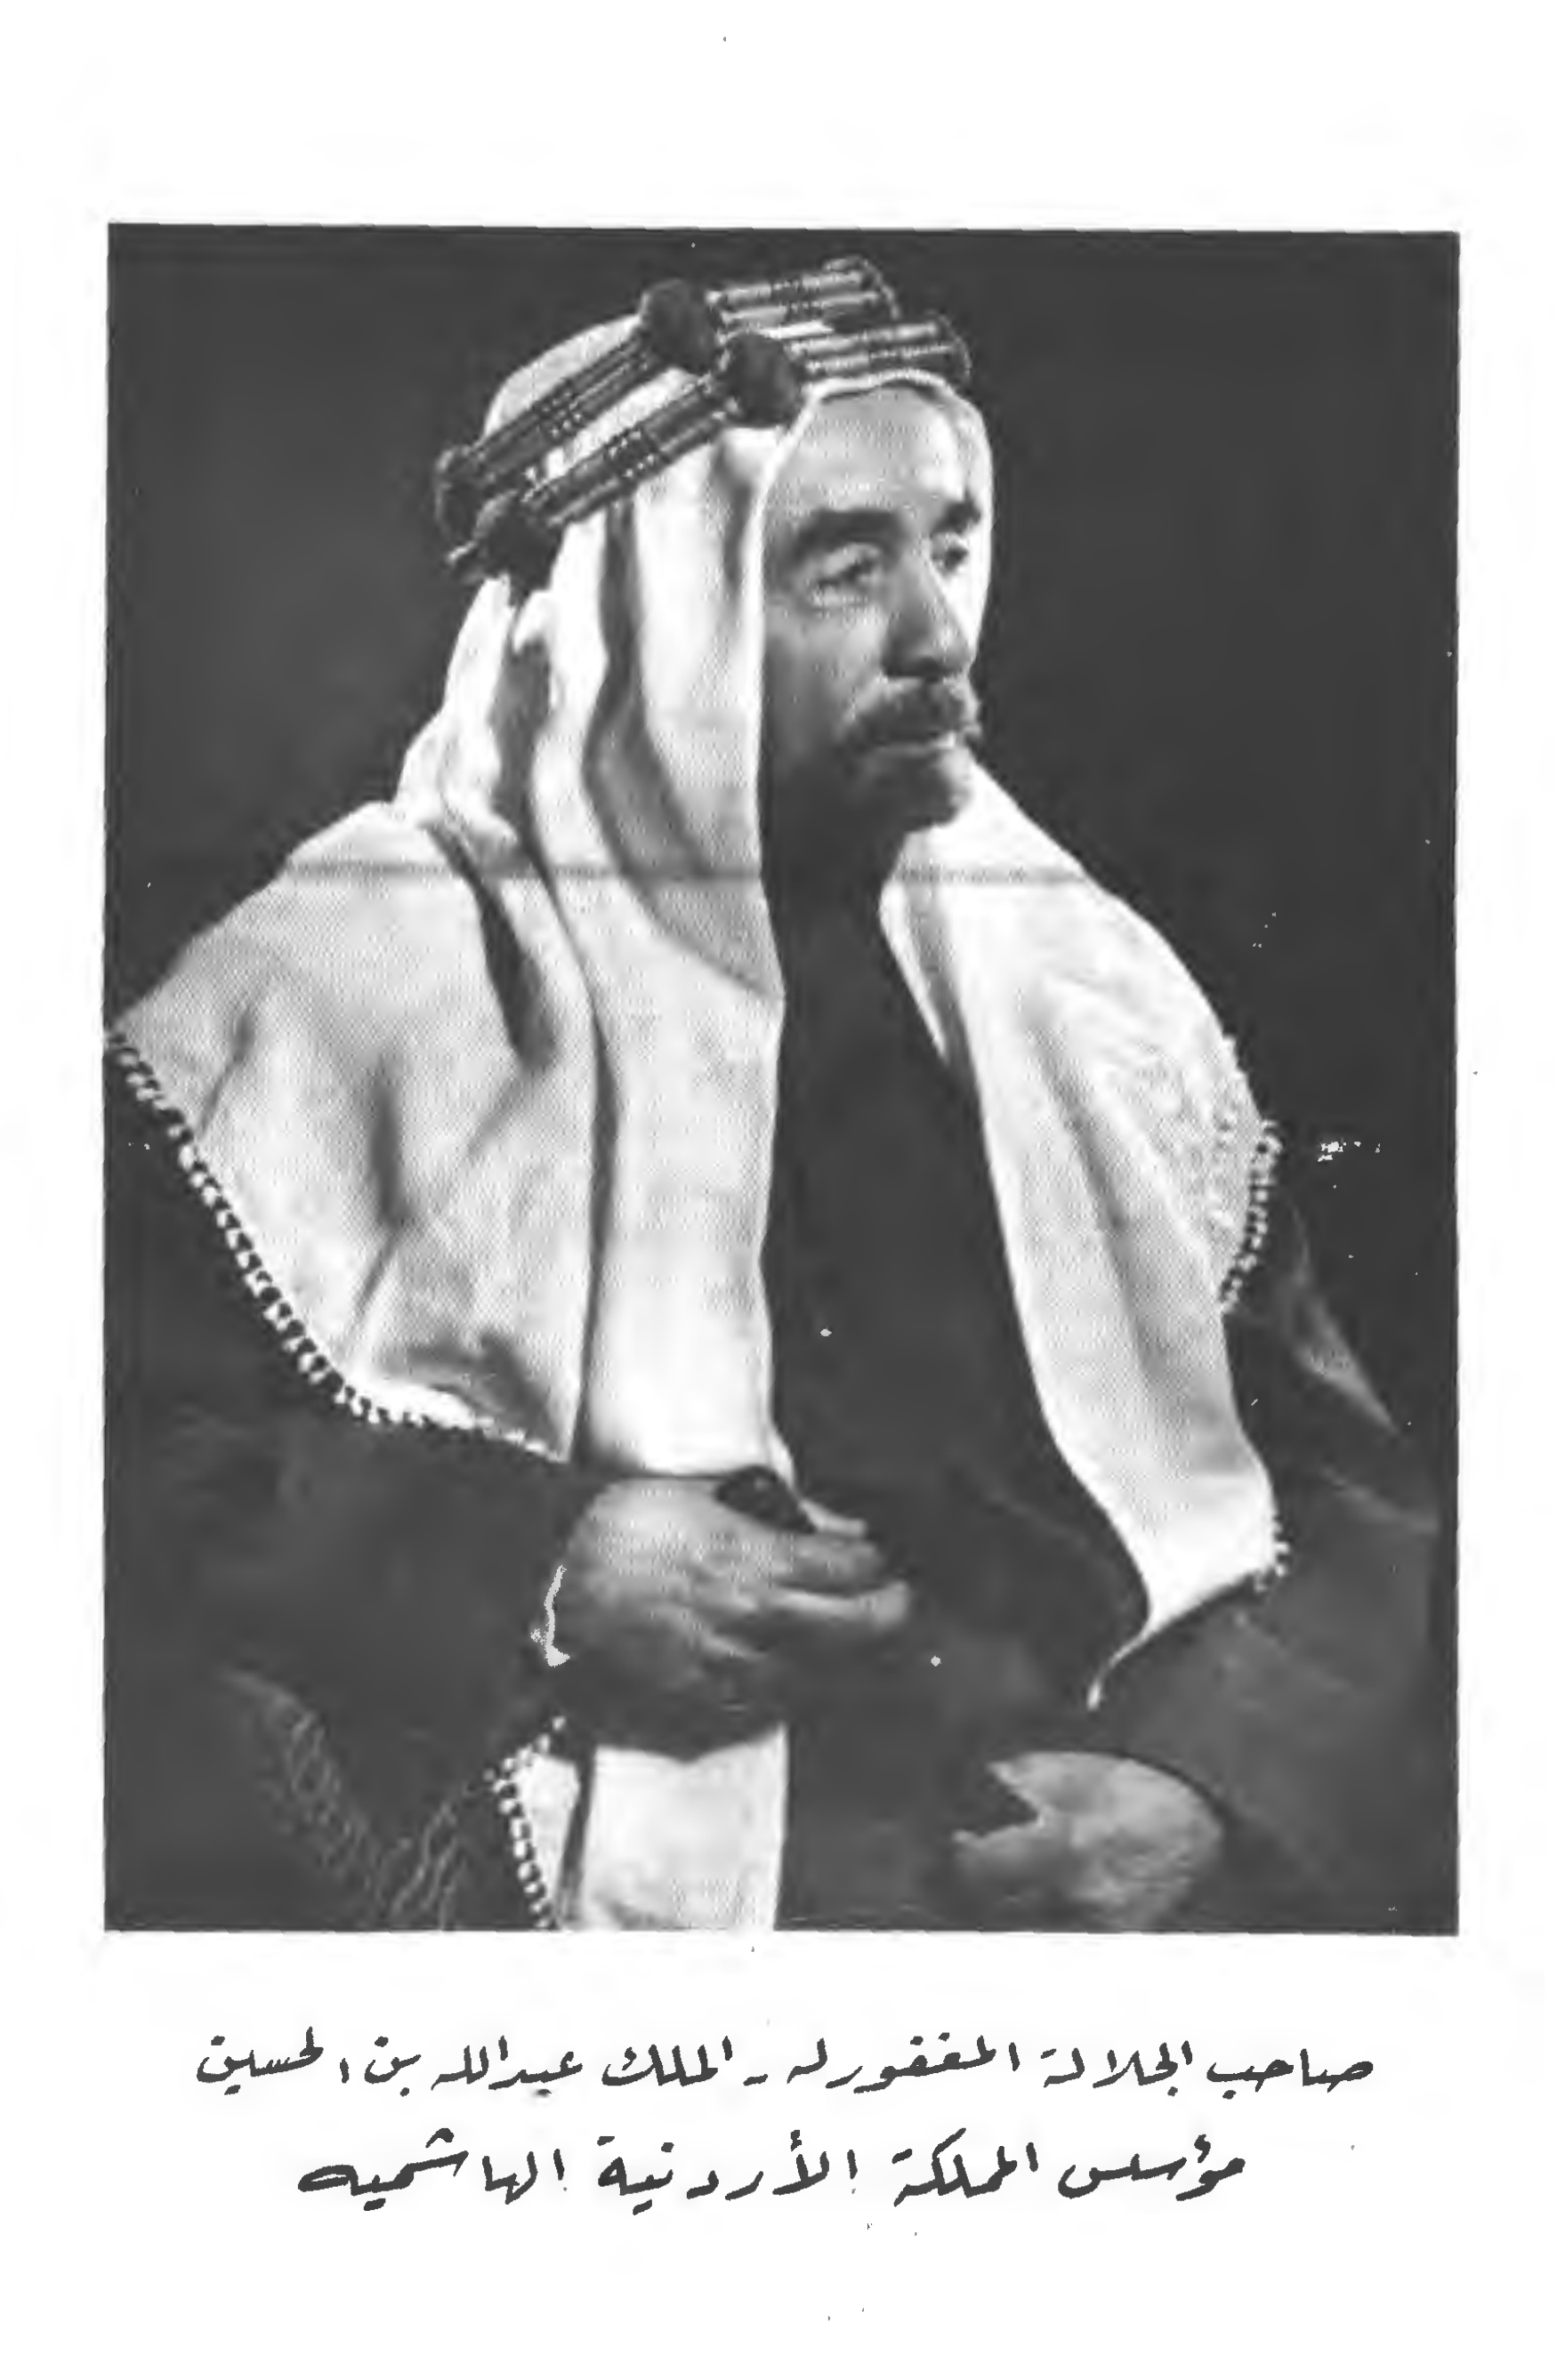 صاحب الجلالة المغفور له - الملك عبدالله بن الحسين
مؤسس المملكة الأردنية الهاشميه